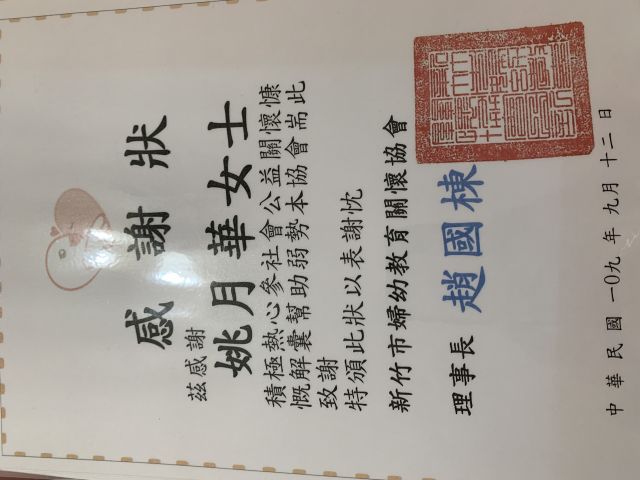 感謝狀
茲感謝
姚月華女士
積極熱心參社會公益關懷慷
慨解囊幫助弱勢本協會耑此
致謝
特頒此狀以表謝忱
新竹市婦幼教育關懷協會
理事長 趙國棟
中華民國一0九年九月十二日